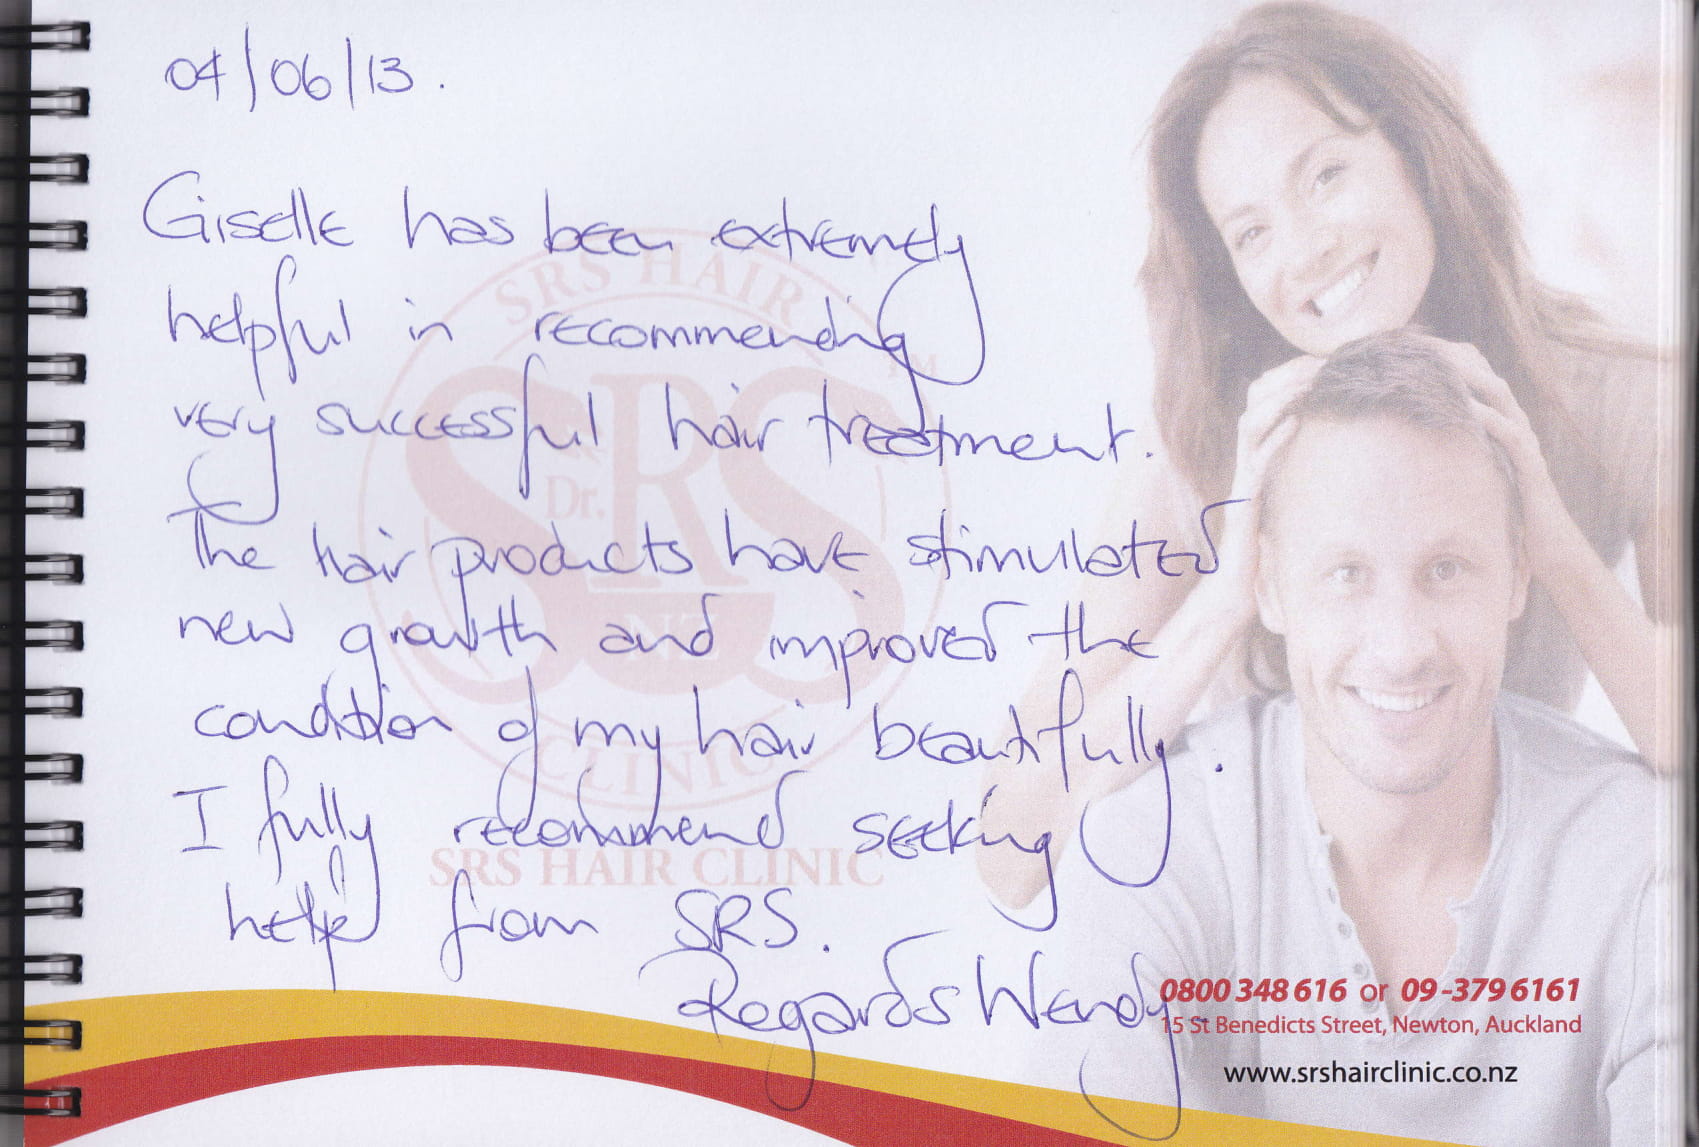 04/06/13.
Giselle has been extremely
helpful in recommending
very successful hair treatment.
The hair products have stimulated
new growth and improved the
condition of my hair beautifully.
I fully recommend seeking
help from SRS.
Regards Wendy.
SRS HAIR
TM
SRS
Dr.
NZ
CLINIC
SRS HAIR CLINIC
0800 348 616 or 09-379 6161
15 St Benedicts Street, Newton, Auckland
www.srshairclinic.co.nz